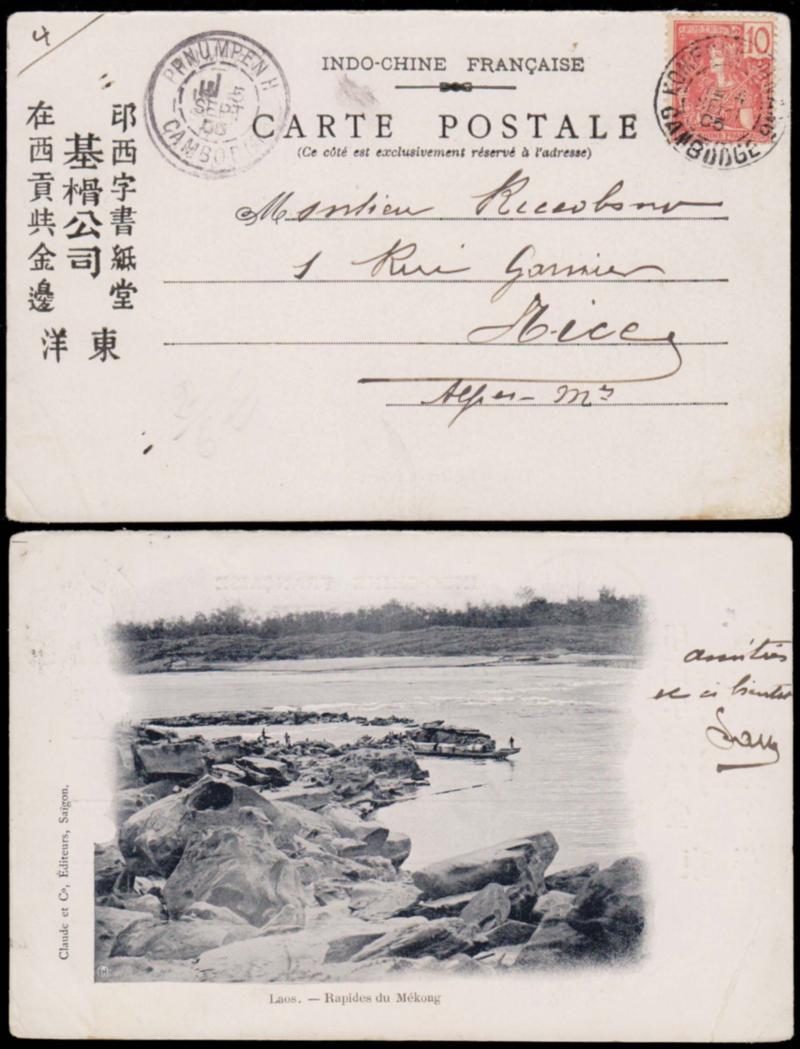 4
PPNUMPENH
SEPT
05
CAMBODGE
INDO-CHINE FRANÇAISE
CARTE POSTALE
(Ce côté est exclusivement réservé à l'adresse)
10
POSTES
CAMBODGE
05
印西字書紙堂
基榾公司
在西貢烘金邊
東洋
Monsieur Riccobono
1 Rue Garnier
Nice
Alpes-Mmes
amitiés
et à bientôt
Claude et Cº, Éditeurs, Saïgon.
Laos. — Rapides du Mékong